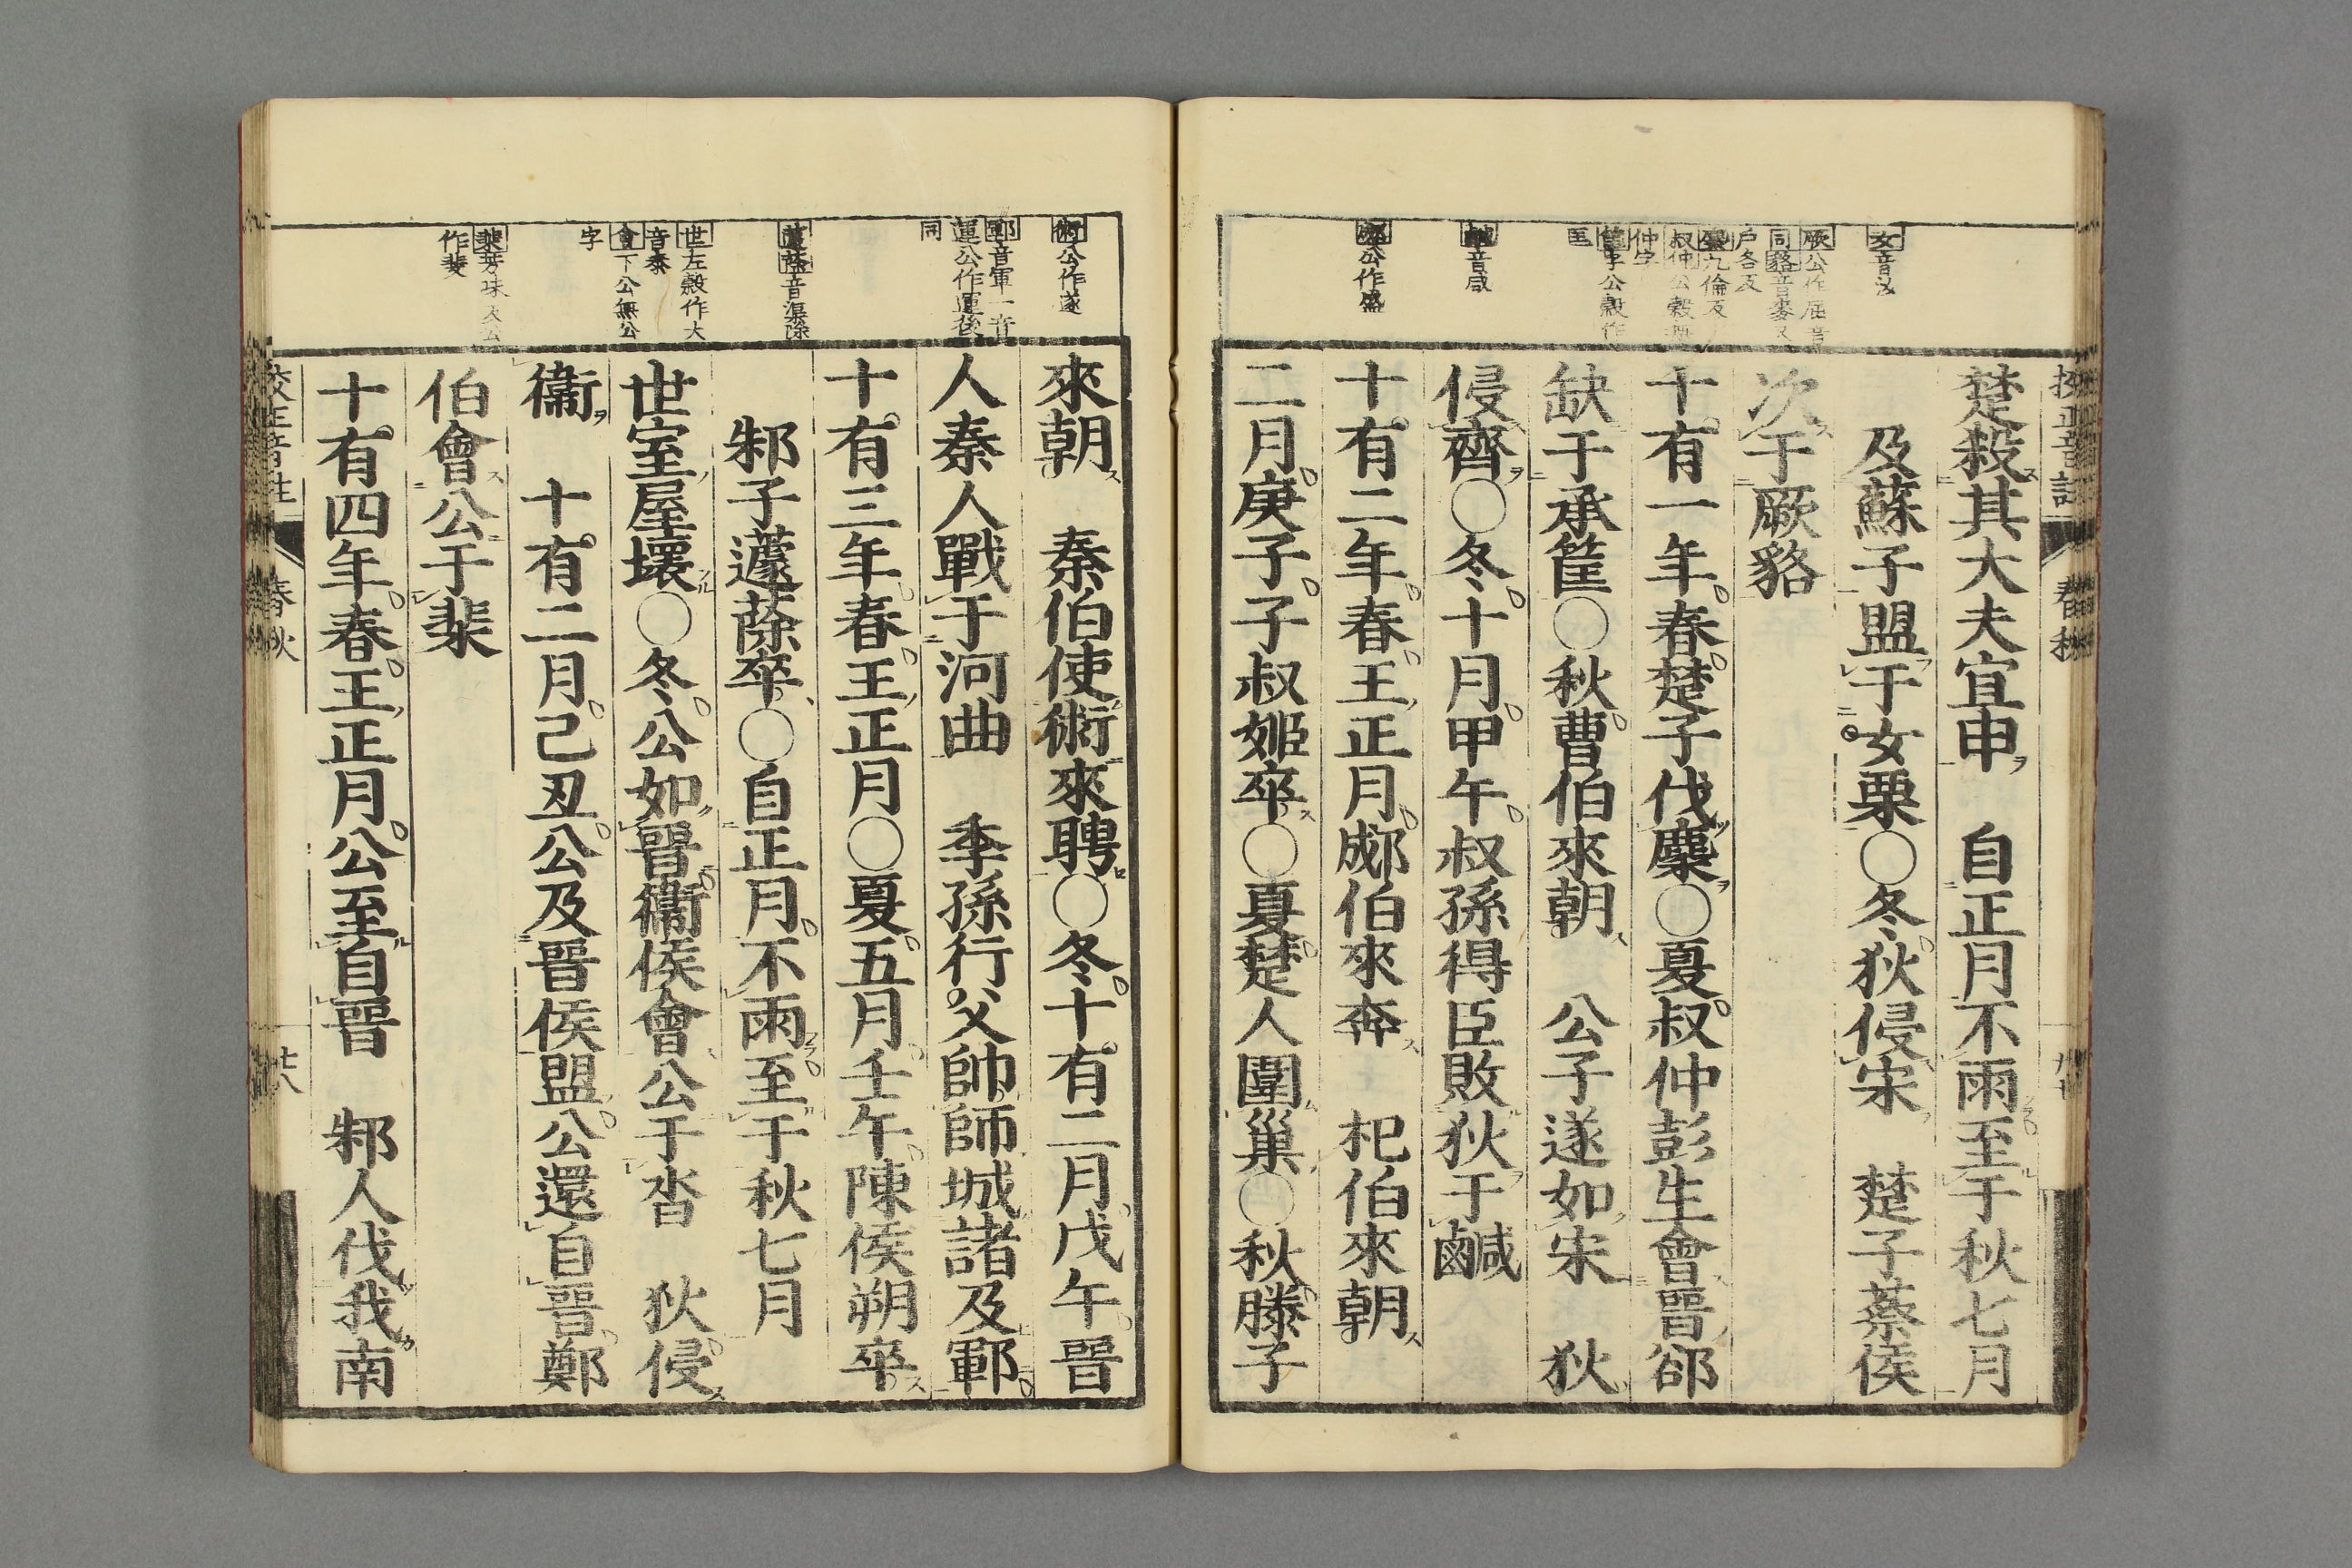 女音汝
厥公作屈音
同貉音麥又
戶各反
麇九倫反
叔仲公穀無
仲字
筐字公穀作
匡
鹹音咸
郕公作盛
楚殺其大夫宜申　自正月不雨至于秋七月
及蘇子盟于女栗〇冬狄侵宋　楚子蔡侯
次于厥貉
十有一年春楚子伐麇〇夏叔仲彭生會晉郤
缺于承筐〇秋曹伯來朝　公子遂如宋　狄
侵齊〇冬十月甲午叔孫得臣敗狄于鹹
十有二年春王正月郕伯來奔　杞伯來朝
二月庚子子叔姬卒〇夏楚人圍巢〇秋滕子
春秋
術公作遂
鄆音軍一音
運公作運後
同
蘧蒢音渠除
世左穀作大
音泰
會下公無公
字
棐芳味反公
作斐
來朝　秦伯使術來聘〇冬十有二月戊午晉
人秦人戰于河曲　季孫行父帥師城諸及鄆
十有三年春王正月〇夏五月壬午陳侯朔卒
邾子蘧蒢卒〇自正月不雨至于秋七月
世室屋壞〇冬公如晉衞侯會公于沓　狄侵
衞　十有二月己丑公及晉侯盟公還自晉鄭
伯會公于棐
十有四年春王正月公至自晉　邾人伐我南
校正音註
春秋
廿八